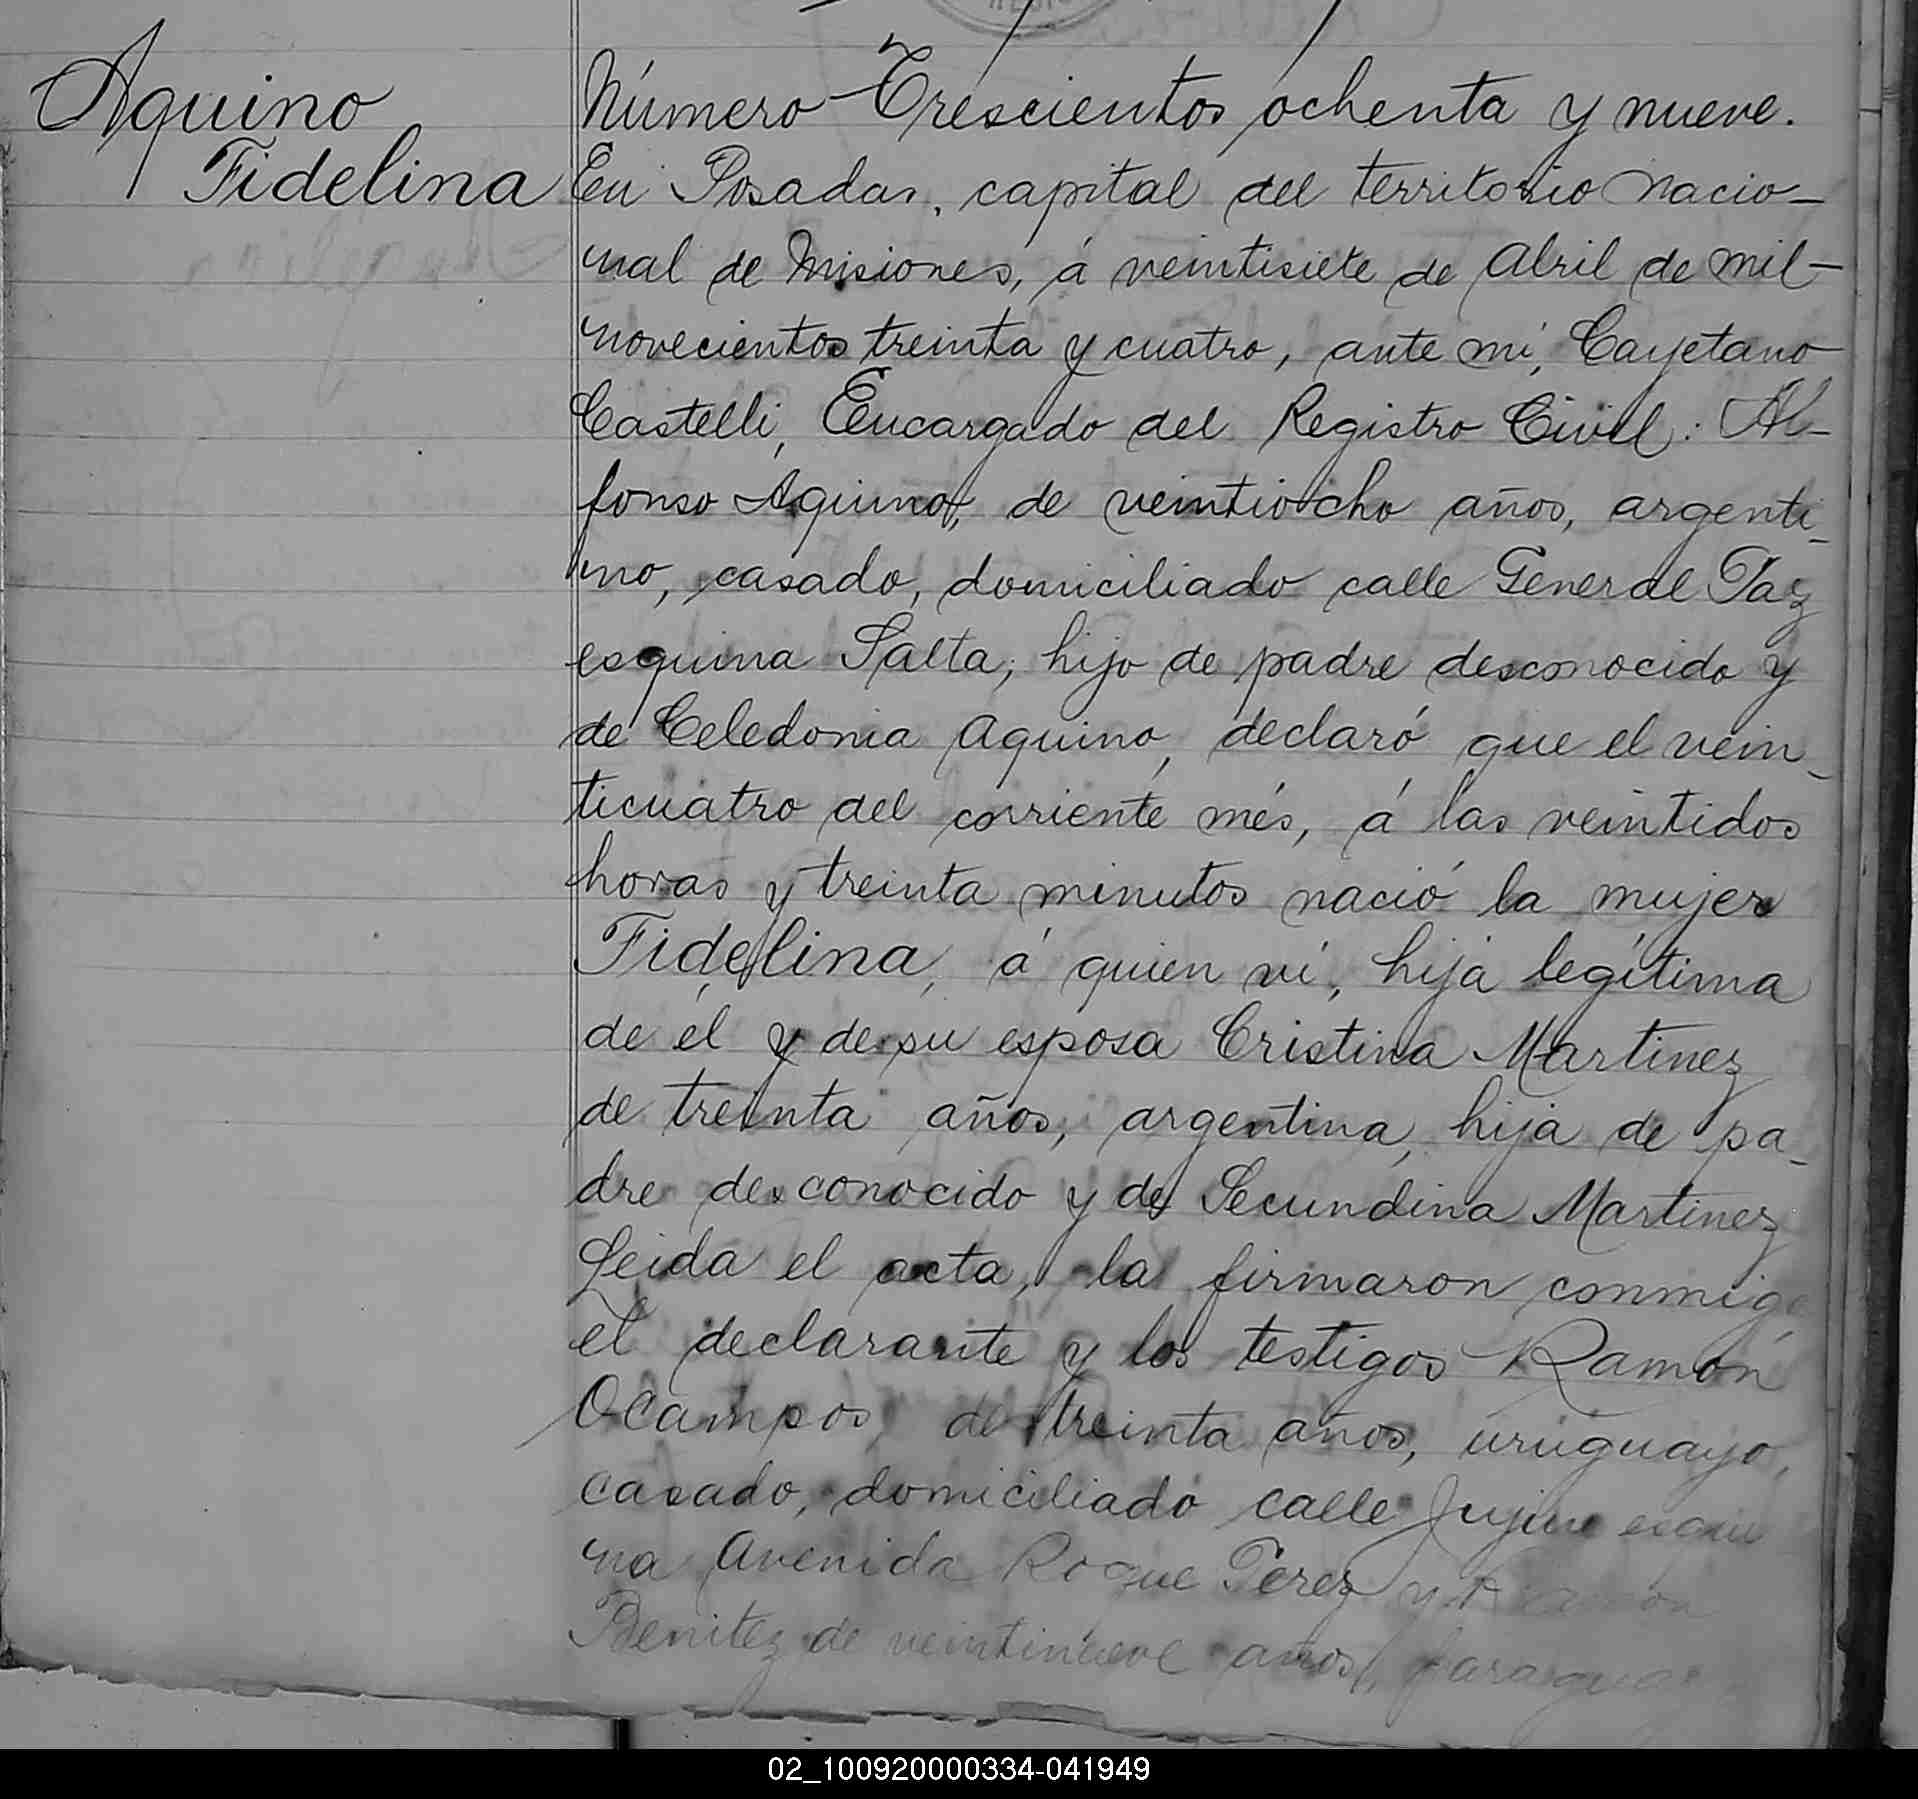 Aquino
Fidelina
Número Trescientos ochenta y nueve.
En Posadas, capital del territorio nacio-
nal de Misiones, á veintisiete de Abril de mil-
novecientos treinta y cuatro, ante mi, Cayetano
Castelli, Encargado del Registro Civil: Al-
fonso Aquino, de veintiocho años, argenti-
no, casado, domiciliado calle General Paz
esquina Salta, hijo de padre desconocido y
de Celedonia Aquino, declaró que el vein-
ticuatro del corriente més, á las veintidos
horas y treinta minutos nació la mujer
Fidelina, á quien ví, hija legítima
de él y de su esposa Cristina Martinez
de treinta años, argentina, hija de pa-
dre desconocido y de Secundina Martinez
Leida el acta, la firmaron conmigo
el declarante y los testigos Ramón
Ocampos, de treinta años, uruguayo,
casado, domiciliado calle Jujuy esqui
na Avenida Roque Perez y Ramon
Benitez de veintinueve años,
02_100920000334-041949